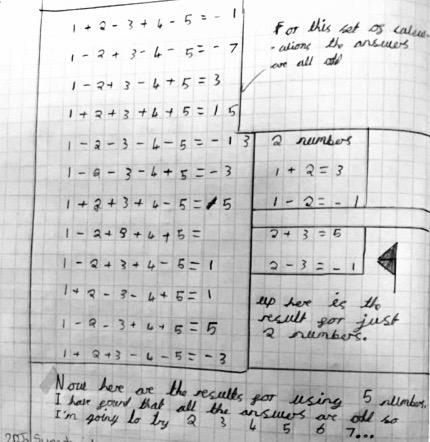 1 + 2 - 3 + 4 - 5 = - 1
1 - 2 + 3 - 4 - 5 = - 7
1 - 2 + 3 - 4 + 5 = 3
1 + 2 + 3 + 4 + 5 = 15
1 - 2 - 3 - 4 - 5 = - 13
1 - 2 - 3 - 4 + 5 = - 3
1 + 2 + 3 + 4 - 5 = 5
1 - 2 + 3 + 4 + 5 =
1 - 2 + 3 + 4 - 5 = 1
1 + 2 - 3 - 4 + 5 = 1
1 - 2 - 3 + 4 + 5 = 5
1 + 2 + 3 - 4 - 5 = - 3
For this set of calcu-
-ations the answers
are all odd
2 numbers
1 + 2 = 3
1 - 2 = - 1
2 + 3 = 5
2 - 3 = - 1
up here is the
result for just
2 numbers.
Now here are the results for using 5 numbers.
I have found that all the answers are odd so
I'm going to try 2 3 4 5 6 7...